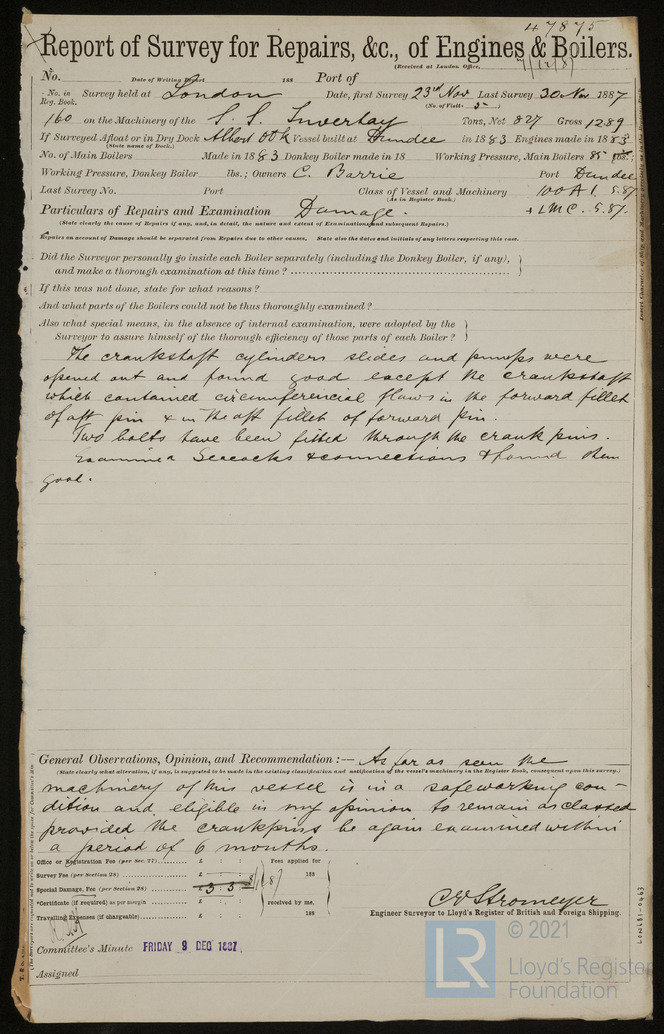 47875
Report of Survey for Repairs, &c., of Engines & Boilers.
(Received at London Office, 7/12/87
No. Date of Writing Report 188 Port of
No. in Reg. Book. Survey held at London Date, first Survey 23rd Nov Last Survey 30 Nov 1887
(No. of Visits 5)
160 on the Machinery of the S. S. Invertay Tons, Net 827 Gross 1289
If Surveyed Afloat or in Dry Dock Albert Dk Vessel built at Dundee in 1883 Engines made in 1883
(State name of Dock.)
No. of Main Boilers Made in 1883 Donkey Boiler made in 18 Working Pressure, Main Boilers 85 lbs.;
Working Pressure, Donkey Boiler lbs.; Owners C. Barrie Port Dundee
Last Survey No. Port Class of Vessel and Machinery 100 A1. 5.87
(As in Register Book.)
Particulars of Repairs and Examination Damage. + LMC. 5.87.
(State clearly the cause of Repairs if any, and, in detail, the nature and extent of Examinations and subsequent Repairs.)
Repairs on account of Damage should be separated from Repairs due to other causes, State also the dates and initials of any letters respecting this case.
Did the Surveyor personally go inside each Boiler separately (including the Donkey Boiler, if any),
and make a thorough examination at this time?
If this was not done, state for what reasons?
And what parts of the Boilers could not be thus thoroughly examined?
Also what special means, in the absence of internal examination, were adopted by the
Surveyor to assure himself of the thorough efficiency of those parts of each Boiler?
The crankshaft cylinders slides and pumps were
opened out and found good except the crankshaft
which contained circumferencial flaws in the forward fillet
of aft pin & in the aft fillet of forward pin.
Two bolts have been fitted through the crank pins.
Examined Seacocks & connections & found them
good.
General Observations, Opinion, and Recommendation:— As far as seen the
(State clearly what alteration, if any, is suggested to be made in the existing classification and notification of the vessel's machinery in the Register Book, consequent upon this survey.)
machinery of this vessel is in a safe working con-
dition and eligible in my opinion to remain as classed
provided the crankpins be again examined within
a period of 6 months.
Office or Registration Fee (per Sec. 27) £ : : Fees applied for
Survey Fee (per Section 28) £ : : 188
Special Damage, Fee (per Section 28) £ 3 : 3 :
*Certificate (if required) as per margin £ : : received by me,
Travelling Expenses (if chargeable) £ : : 188
C E Stromeyer
Engineer Surveyor to Lloyd's Register of British and Foreign Shipping.
Committee's Minute FRIDAY 9 DEC 1887
Assigned
LON681-0463
© 2021
LR
Lloyd's Register
Foundation